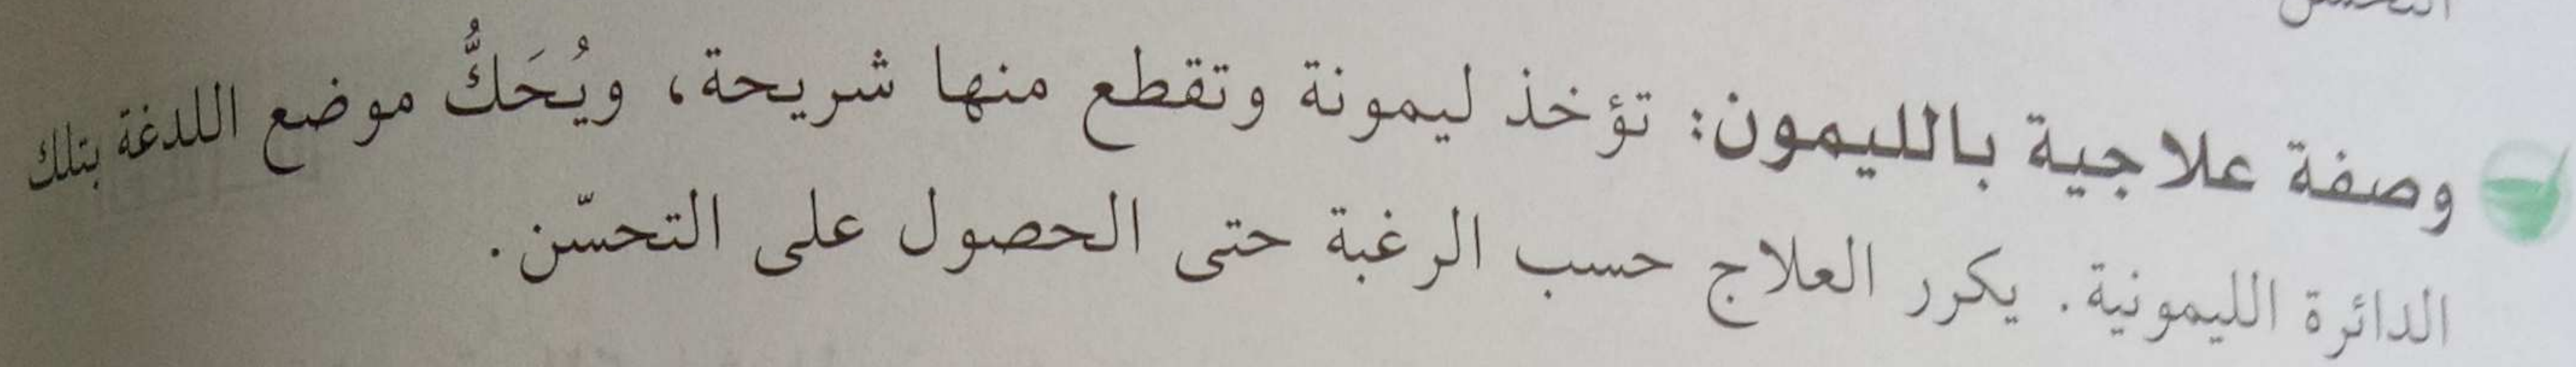 وصفة علاجية بالليمون: تؤخذ ليمونة وتقطع منها شريحة، ويُحَكُّ موضع اللدغة بتلك
الدائرة الليمونية. يكرر العلاج حسب الرغبة حتى الحصول على التحسّن.